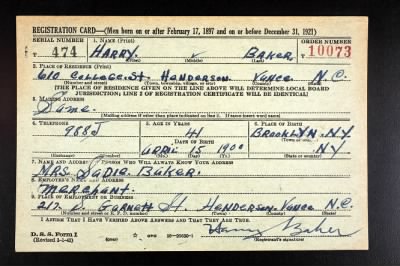 REGISTRATION CARD—(Men born on or after February 17, 1897 and on or before December 31, 1921)
SERIAL NUMBER 1. NAME (Print) ORDER NUMBER
T 474 HARRY BAKER T 10073
(First) (Middle) (Last)
2. PLACE OF RESIDENCE (Print)
610 College St Henderson Vance N.C.
(Number and street) (Town, township, village, or city) (County) (State)
[THE PLACE OF RESIDENCE GIVEN ON THE LINE ABOVE WILL DETERMINE LOCAL BOARD
JURISDICTION; LINE 2 OF REGISTRATION CERTIFICATE WILL BE IDENTICAL]
3. MAILING ADDRESS
Same.
[Mailing address if other than place indicated on line 2. If same insert word same]
4. TELEPHONE 5. AGE IN YEARS 6. PLACE OF BIRTH
988J 41 BROOKLYN. NY
DATE OF BIRTH (Town or county)
APRIL 15 1900 NY
(Exchange) (Number) (Mo.) (Day) (Yr.) (State or country)
7. NAME AND ADDRESS OF PERSON WHO WILL ALWAYS KNOW YOUR ADDRESS
MRS. SADIE BAKER.
8. EMPLOYER'S NAME AND ADDRESS
Merchant.
9. PLACE OF EMPLOYMENT OR BUSINESS
217 Garnett St. HENDERSON. Vance N.C.
(Number and street or R. F. D. number) (Town) (County) (State)
I AFFIRM THAT I HAVE VERIFIED ABOVE ANSWERS AND THAT THEY ARE TRUE.
D. S. S. Form 1
(Revised 1-1-42) (over) ☆ GPO 16—21630-1 Harry Baker
(Registrant's signature)